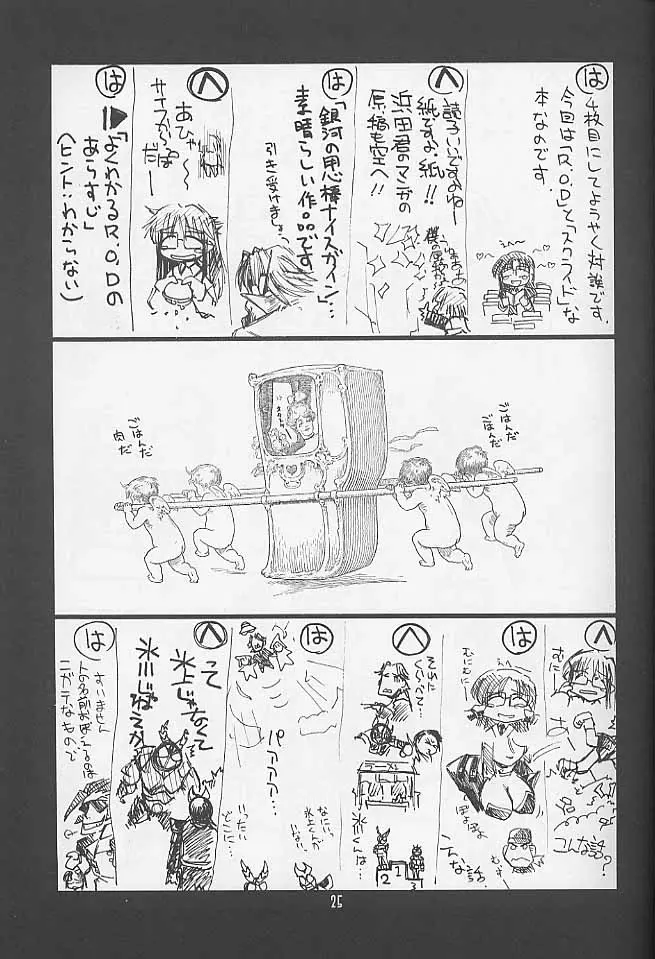 は
4枚目にしてようやく対談です.
今回は「R.O.D」と「スクライド」な
本なのです.
へ
読子いいですよねー
紙ですよ、紙!!
浜田君のマンガの
原稿も空へ!!
僕の原稿がー
は
「銀河の用心棒ナイスガイン」…
素晴らしい作品です
引き受けましょう
へ
あひゃ〜
だー
は
「よくわかるR.O.Dの
あらすじ」
(ヒント:わからない)
ごはんだ
ごはんだ
ごはんだ
肉だ
へ
むに
こんな話?
は
むにむに
ぽよぽよ
こんな話。
へ
それに
くらべて…
氷川くんは…
2
1
3
は
パアアア…
なにい、
氷上くんが
いない
へ
って
氷上じゃなくて
氷川じゃねえか
いったい
どこに…
は
すいません
人の名前おぼえるのは
ニガテなもので
25